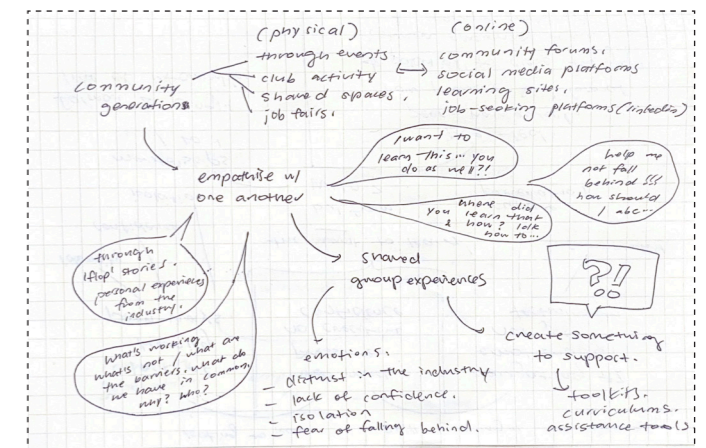 (physical)
(online)
community
generations
through events.
club activity
shared spaces.
job fairs.
community forums.
social media platforms
learning sites.
job-seeking platforms (linkedin)
empathise w/
one another
I want to
learn this... you
do as well?!
where did
you learn that
& how? idk
how to...
help me
not fall
behind
how should
I abc...
through
'flop' stories.
personal experiences
from the
industry.
what's working
what's not / what are
the barriers. what do
we have in common.
why? who?
shared
group experiences
emotions:
- distrust in the industry
- lack of confidence.
- isolation
- fear of falling behind.
?!!
create something
to support.
toolkits.
curriculums.
assistance tools